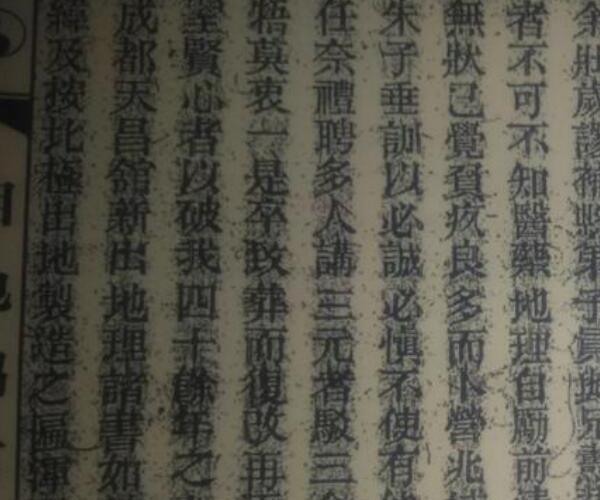 余壯歲謬補縣第子員
者不可不知醫藥地理自勵前
無狀己覺負疚良多而卜營兆
朱子垂訓以必誠必慎不使有
任奈禮聘多人講三元者駁三
牾莫衷一是卒致葬而復改再
聖賢心者以破我四十餘年之
成都天昌舘新出地理諸書如
緯及按北極出地製造之